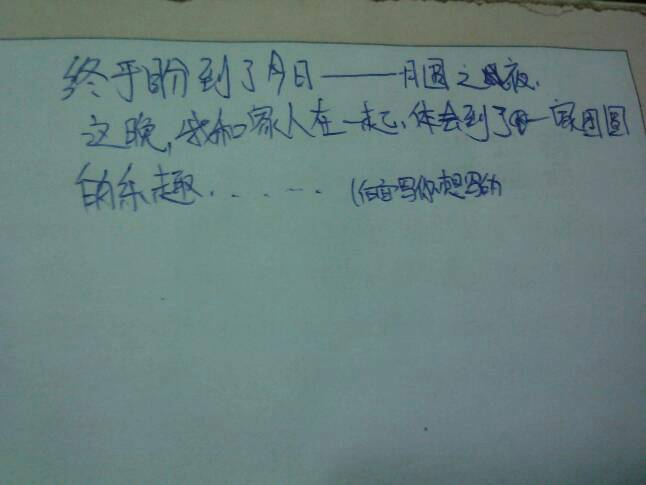 终于盼到了今日——月圆之夜.
这晚,我和家人在一起,体会到了一家团圆
的乐趣.......(自写你想写的)